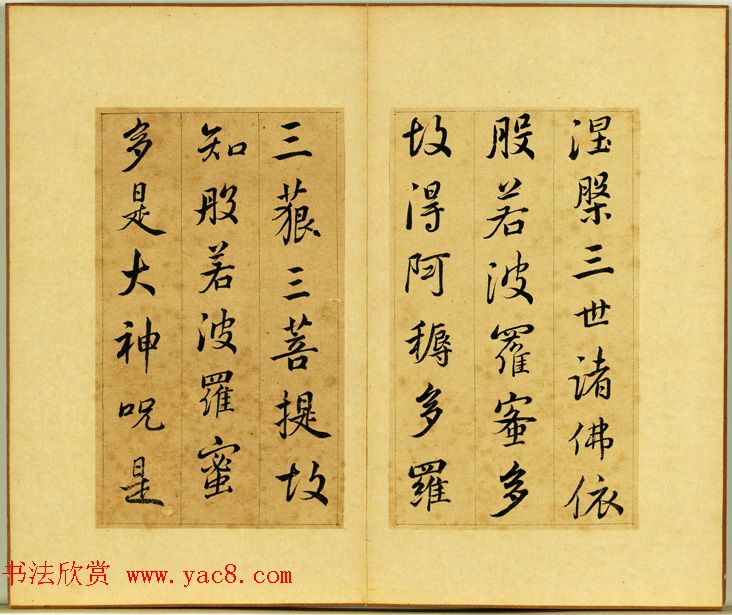 涅槃三世諸佛依
般若波羅蜜多
故得阿耨多羅
三藐三菩提故
知般若波羅蜜
多是大神呪是
书法欣赏 www.yac8.com